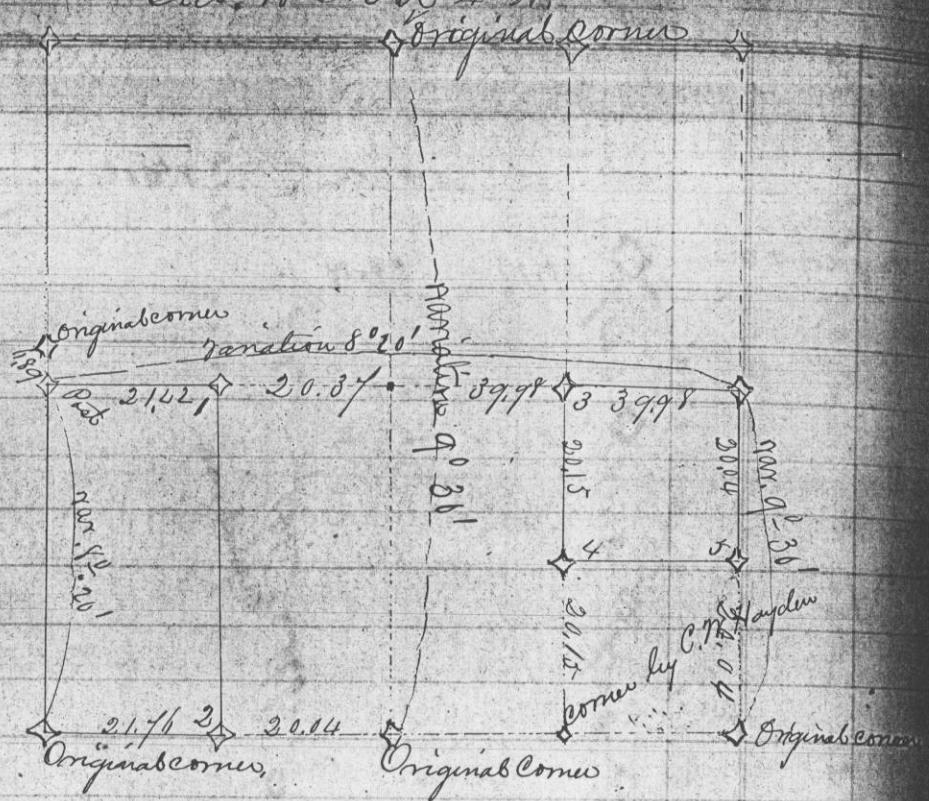 Original corner
Original corner
Variation 8° 20'
11,89
Post
21,42
20.37
39,98
3
39,98
Variation 9° 30'
20,15
20,04
var. 9°-30'
4
5
var. 8°-20'
20,15
20,04
corner by C.M. Hayden
21,76
2
20.04
Original corner
Original corner,
Original Corner